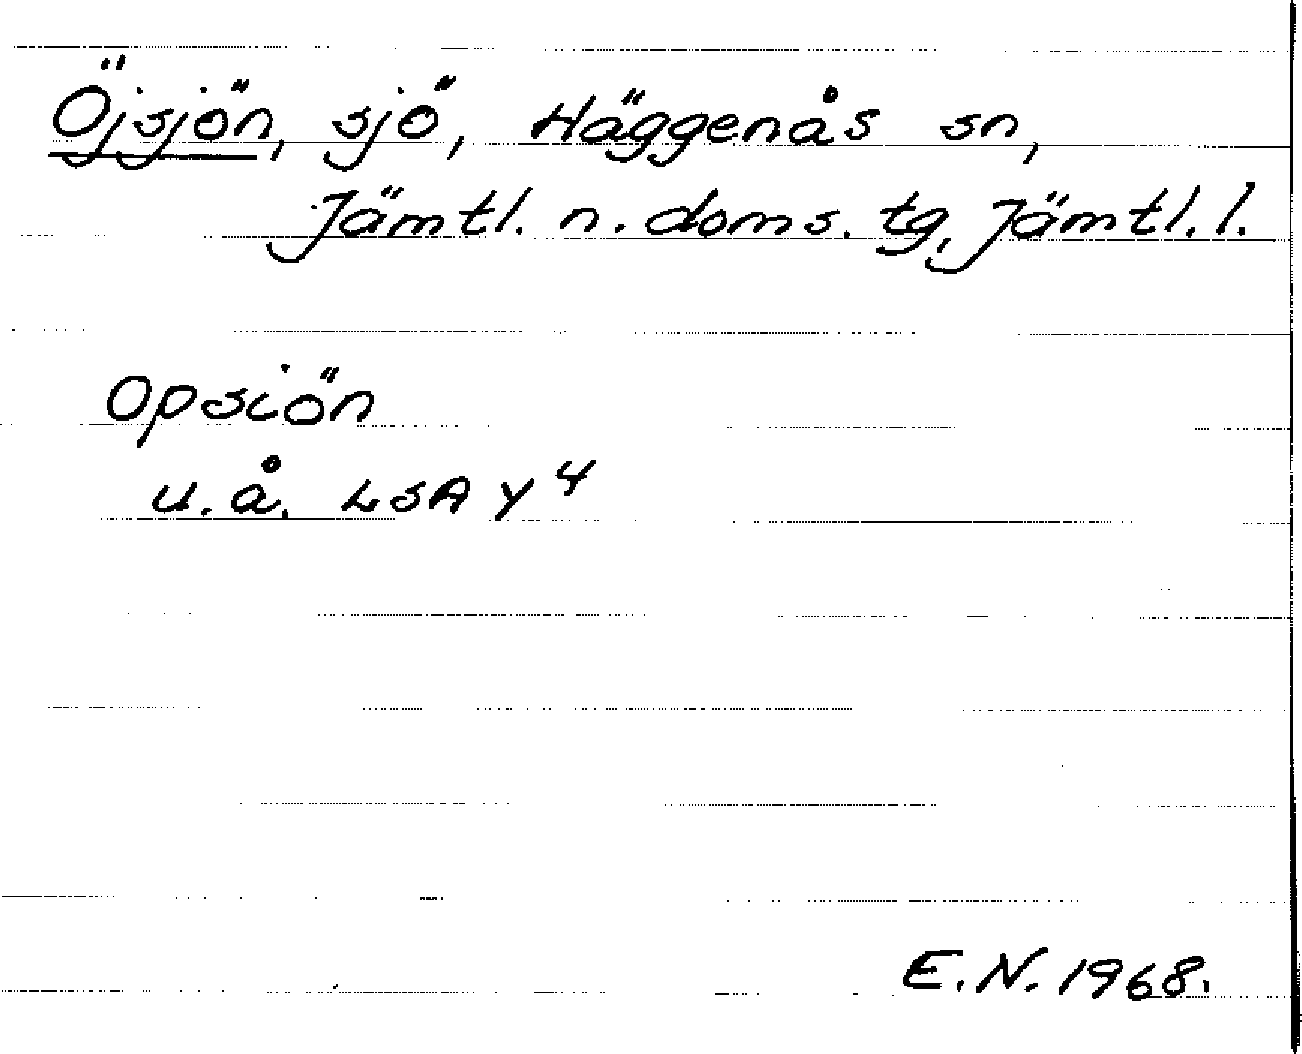 Öjsjön, sjö, Häggenås sn,
Jämtl. n. doms. tg, Jämtl. l.
Opsiön
u.å. LSA Y 4
E.N. 1968.